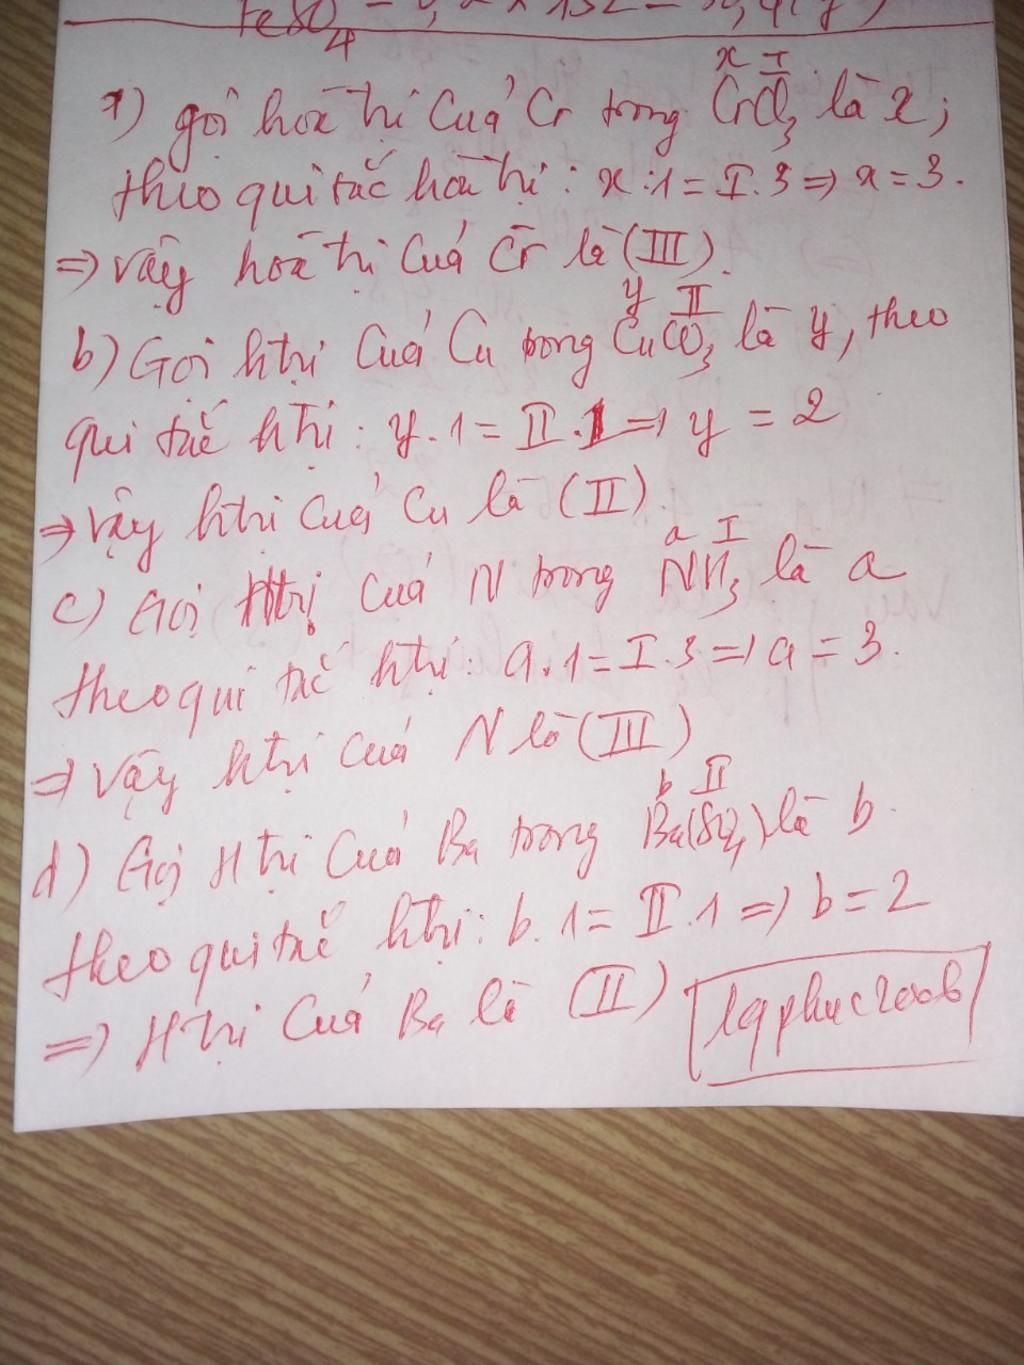 FeSO4
a) gọi hoá trị của Cr trong CrCl3 là x;
x I
theo qui tắc hoá trị: x.1 = I.3 => x = 3.
=> vậy hoá trị của Cr là (III).
y II
b) Gọi htrị của Cu trong CuCO3 là y, theo
qui tắc htrị: y.1 = II.1 => y = 2
=> vậy htrị của Cu là (II).
a I
c) Gọi Htrị của N trong NH3 là a
theo qui tắc htrị: a.1 = I.3 => a = 3.
=> vậy htrị của N là (III)
b II
d) Gọi Htrị của Ba trong Ba(SO4) là b.
theo qui tắc htrị: b.1 = II.1 => b = 2
=> Htrị của Ba là (II)
lqphuc2006